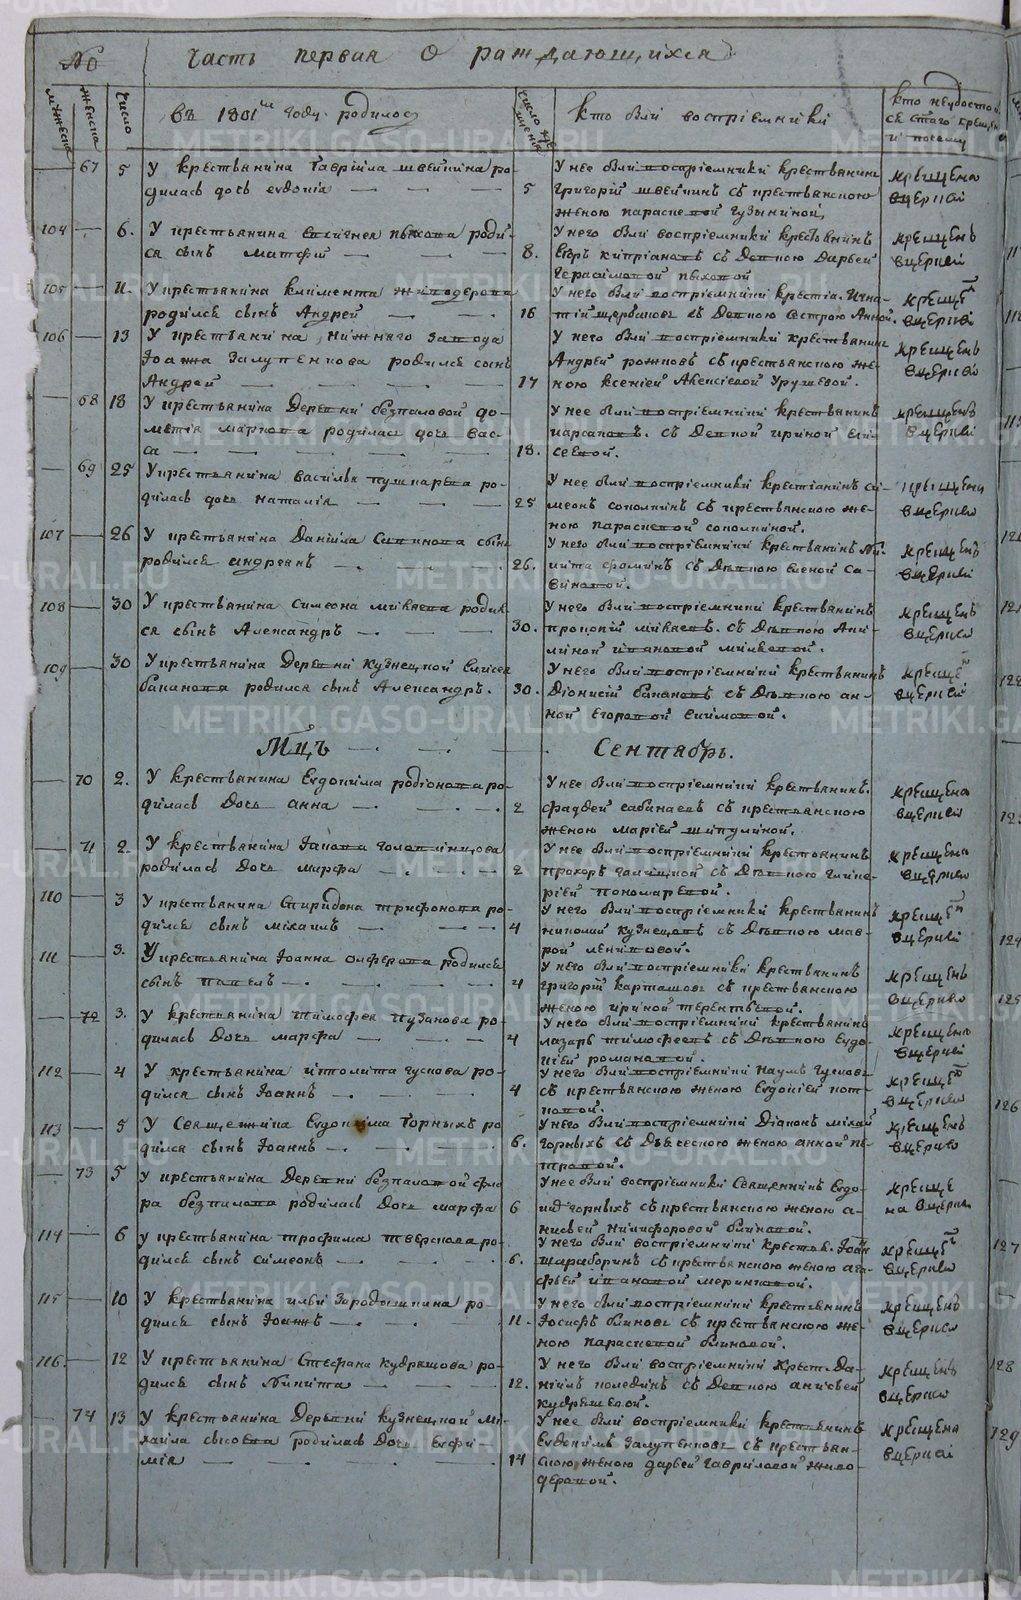 № Часть первая о раждающихся
мужеска женска число въ 1801м году родилос число крещения кто были восприемники кто неудостоился стаго крещения и почему
67 5 У крестьянина Гаврiила швейкина ро-
дилась дочь евдокiа
5 У нее были восприемники крестьянинъ
григорiй швейкинъ съ крестьянскою
женою параскевой
крещена
вцеркви
104 6. У крестьянина пыхова роди-
ся сынъ матфiй
8. У него были восприемники крестьянинъ
Егоръ кипрiановъ съ девкою Дарьей
Герасимовой пыховой
крещенъ
вцеркви
105 У крестьянина климента живодерова
родился сынъ Андрей
16 У него были восприемники крестiа. Игна-
тiй щербаковъ съ девкою сестрою Анной.
крещенъ
вцеркви
106 13 У крестьянина нижняго завода
Iоанна Залупенкова родился сынъ
Андрей
17 У него были восприемники крестьянинъ
Андрей рожковъ съ крестьянскою же-
ною ксенiей Алексiевой Урушевой.
крещенъ
вцеркви
68 18 У крестьянина Деревни безпаловой до-
метiя маркова родилась дочь Вас-
са
18. У нее были восприемники крестьянинъ
съ девкой ириной ели-
сеевой.
крещенъ
вцеркви
69 25 У крестьянина василья пушкарева ро-
дилась дочь наталiя
25 У нее были восприемники крестiанинъ си-
меонъ сополкинъ съ крестьянскою же-
ною параскевой сополкиной.
крещена
вцеркви
107 26 У крестьянина Данiила Савинова сынъ
родился андреанъ
26. У него были восприемники крестьянинъ Ни-
кита фоминъ съ девкою еленой Са-
виновой.
крещенъ
вцеркви
108 30 У крестьянина Симеона михаева родил-
ся сынъ Александръ
30. У него были восприемники крестьянинъ
прокопiй михаевъ. съ девкою Аки-
линой ивановой
крещенъ
вцеркви
109 30 У крестьянина Деревни кузнецкой Елисея
баканова родился сынъ Александръ.
30. У него были восприемники крестьянинъ
Дiонисiй бакановъ съ девкою ан-
ной Егоровой
крещенъ
вцеркви
Мцъ Сентябрь.
70 2. У крестьянина Евдокима родiонова ро-
дилась дочь анна
2 У нее были восприемники крестьянинъ.
фаддей сабанаевъ съ крестьянскою
женою марiей шипулиной.
крещена
вцеркви
71 2. У крестьянина Iакова
родилась дочь марфа
2 У нее были восприемники крестьянинъ
прохоръ съ девкою глике-
рiей пономаревой.
крещена
вцеркви
110 3 У крестьянина Спиридона трифонова ро-
дился сынъ мiхаилъ
4 У него были восприемники крестьянинъ
николай кузнецовъ съ девкою мав-
рой
крещенъ
вцеркви
111 3. У крестьянина Iоанна олферова родился
сынъ павелъ
4 У него были восприемники крестьянинъ
григорiй карташовъ съ крестьянскою
женою ириной терентьевой.
крещенъ
вцеркви
72 3. У крестьянина тимофея пузанова ро-
дилась дочь марфа
4 У него были восприемники крестьянинъ
лазарь тимофеевъ съ девкою Евдо-
кiей романовой.
крещена
вцеркви
112 4 У крестьянина иполита гускова ро-
дился сынъ Iоаннъ
4 У него были восприемники наумъ гусковъ
съ крестьянскою женою Евдокiей
крещенъ
вцеркви
113 5 У Священника Евдокима Горныхъ ро
дился сынъ Iоаннъ
6. У него были восприемники Дiаконъ михаи
горныхъ съ женою анной пе-
тровой.
крещенъ
вцеркви
73 5 У крестьянина Деревни безпаловой фло-
ра безпалова родилась дочь марфа
6 У нее были восприемники Священникъ Евдо-
ким горныхъ съ крестьянскою женою а-
нисьей никифоровой блиновой.
креще
на вцеркви
114 6 у крестьянина трофима тверскова ро-
дился сынъ симеонъ
6. У него были восприемники крестья. Iоанн
шараборинъ съ крестьянскою женою ага-
фьей ивановой
крещенъ
вцеркви
115 10 У крестьянина ильи Зародышкина ро-
дился сынъ Iоаннъ
11. У него были восприемники крестьянинъ
Iосифъ блиновъ съ крестьянскою же-
ною параскевой блиновой.
крещенъ
вцеркви
116. 12 У крестьянина Стефана кудряшова ро-
дился сынъ Никита
12. У него были восприемники крест. Да-
нiилъ полединъ съ девкою анисьей
кудряшевой.
крещенъ
вцеркви
74 13 У крестьянина Деревни кузнецкой ми-
хаила сысоева родилась дочь Евфи-
мiя
14 У нее были восприемники крестьянинъ
Евдокимъ Залупенковъ съ крестьян-
скою женою дарьей гавриловой живо-
деровой.
крещена
вцеркви
METRIKI.GASO-URAL.RU